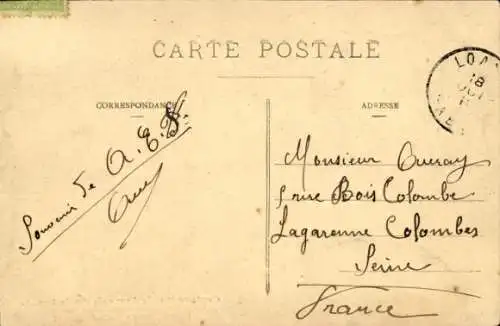 CARTE POSTALE
CORRESPONDANCE
ADRESSE
LOA
18
Souvenir de A. E.
Monsieur Oueray
rue Bois Colombe
Lagarenne Colombes
Seine
France